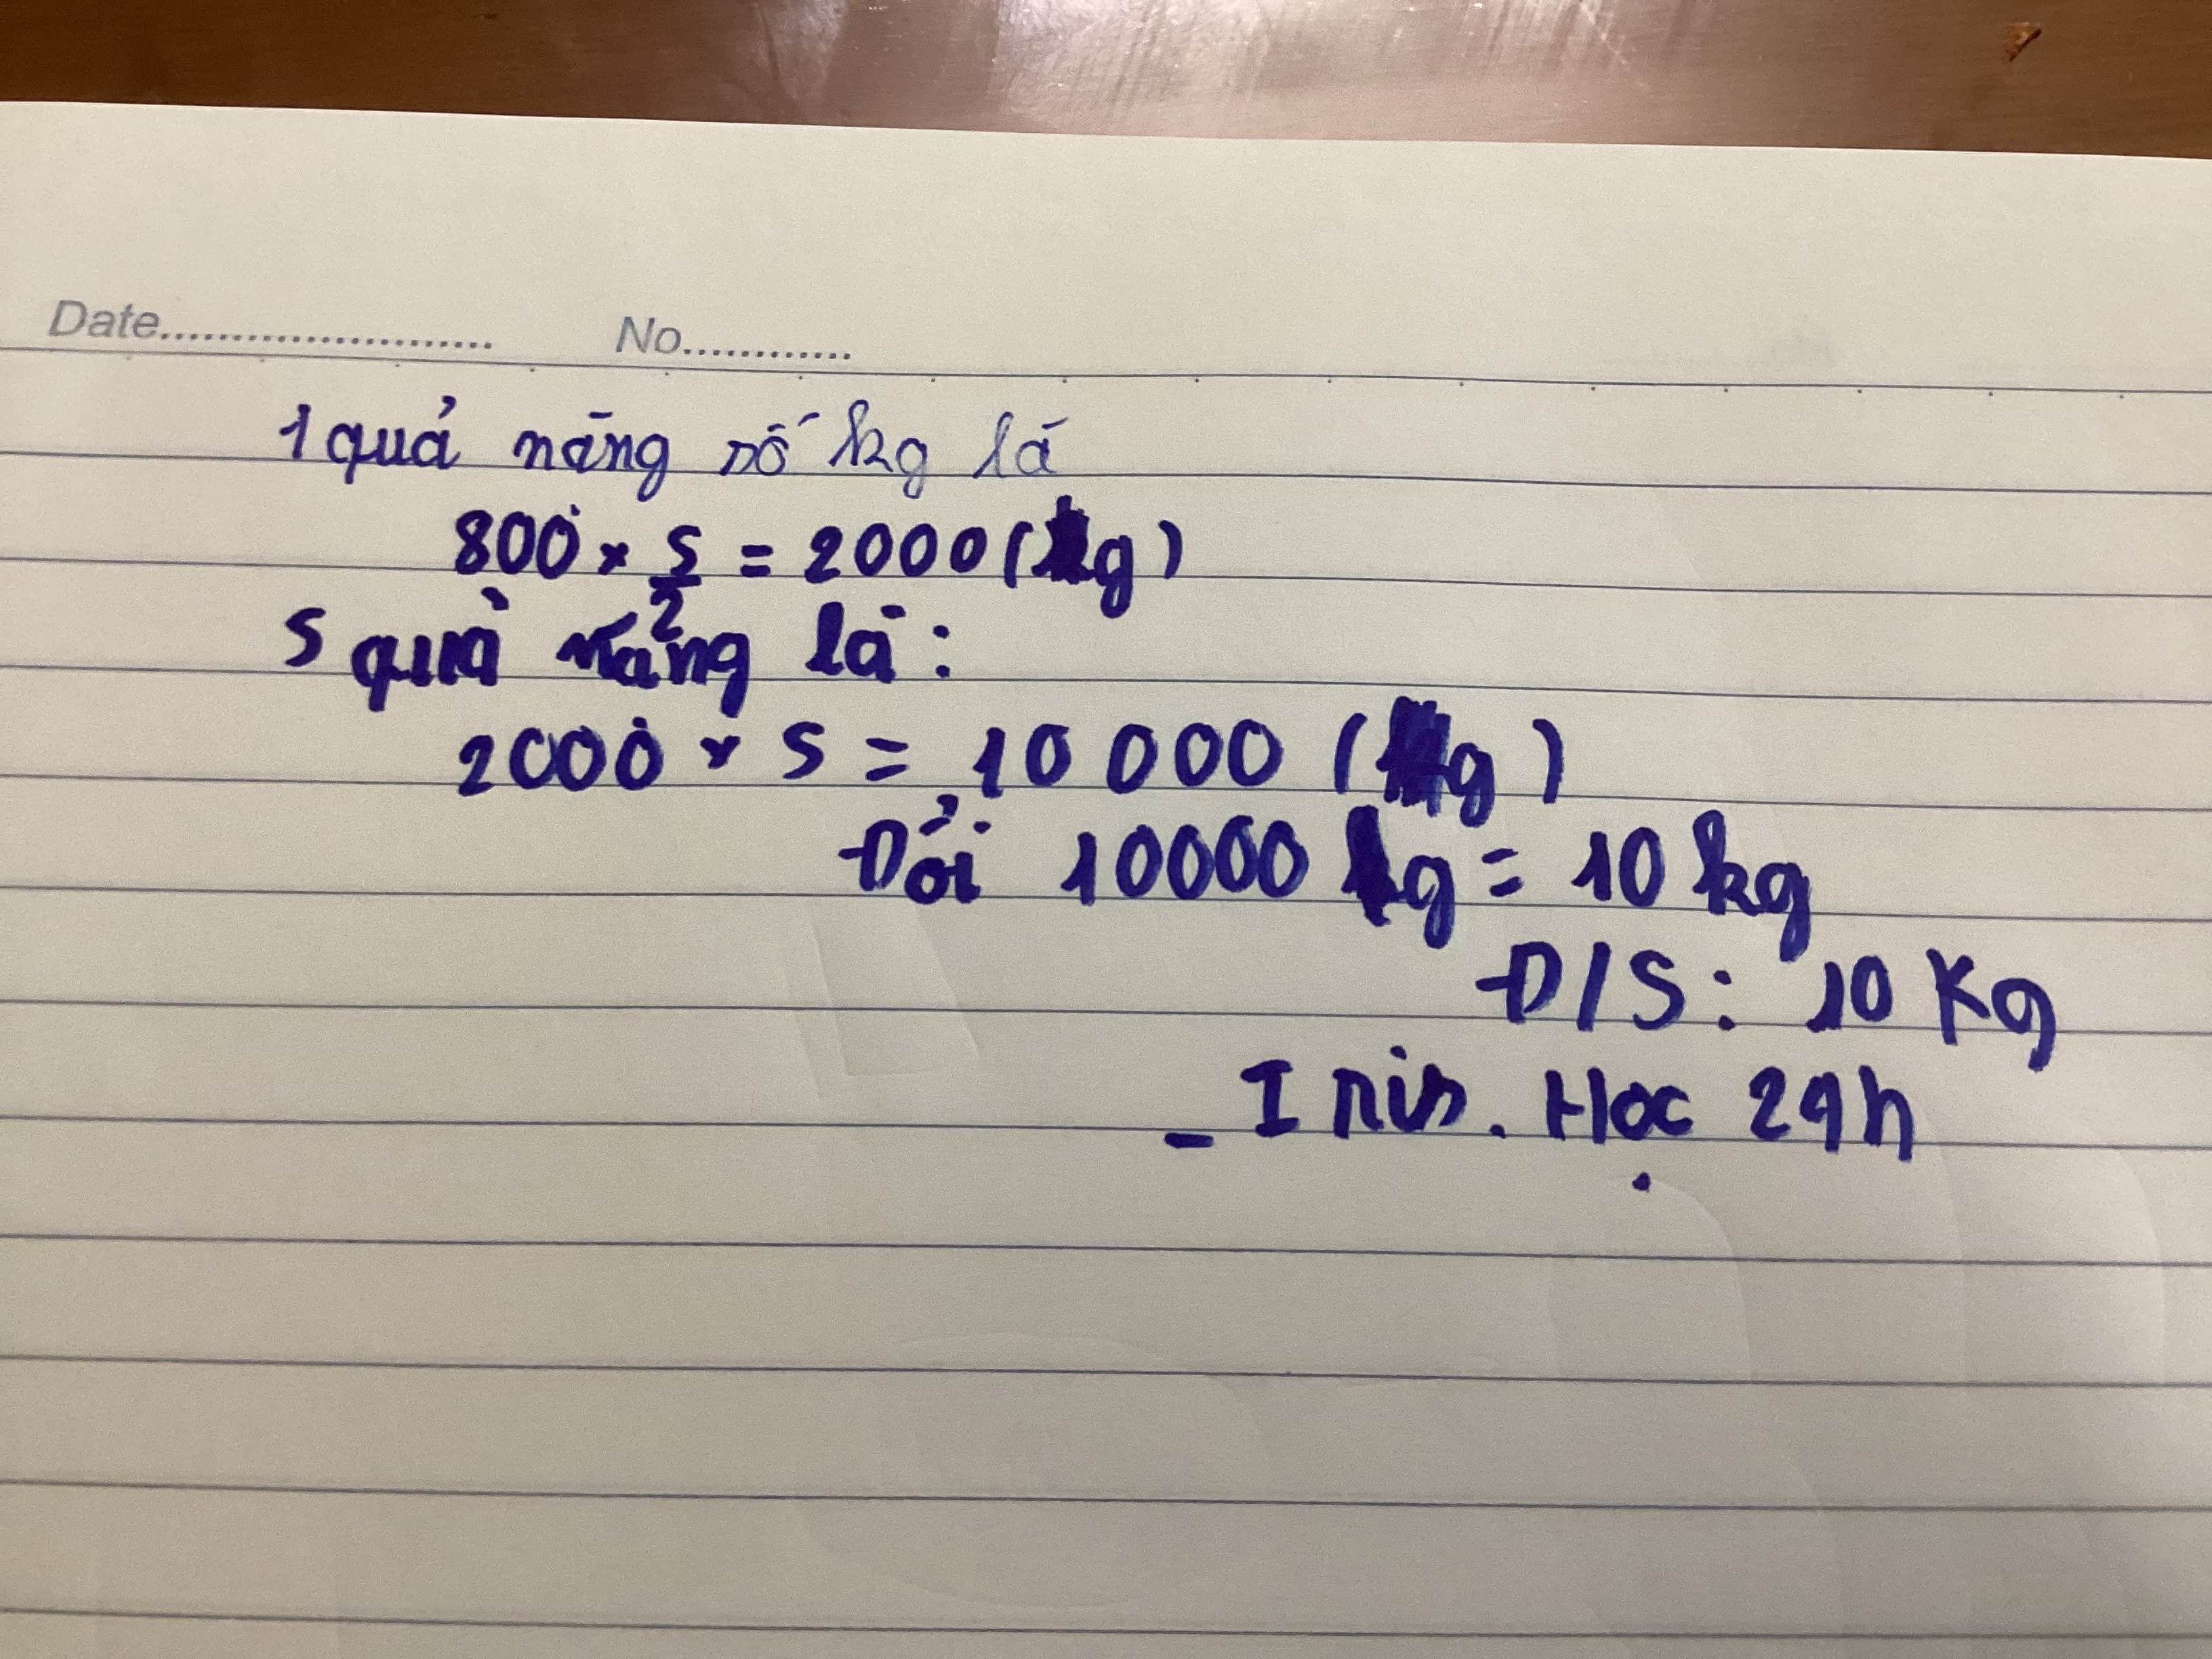 Date............................ No.............
1 quả nặng số kg là
800 × 5/2 = 2000 (g)
5 quả nặng là:
2000 × 5 = 10 000 (g)
Đổi 10000 g = 10 kg
Đ/S: 10 Kg
_ Iris. Học 24h